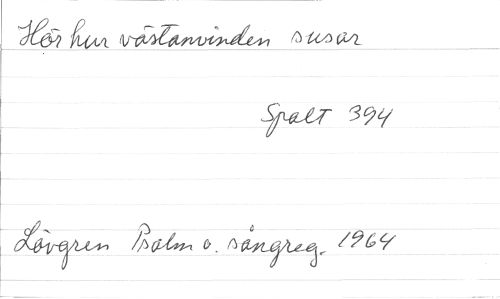 Hör hur västanvinden susar
Spalt 394
Lövgren Psalm o. sångreg. 1964